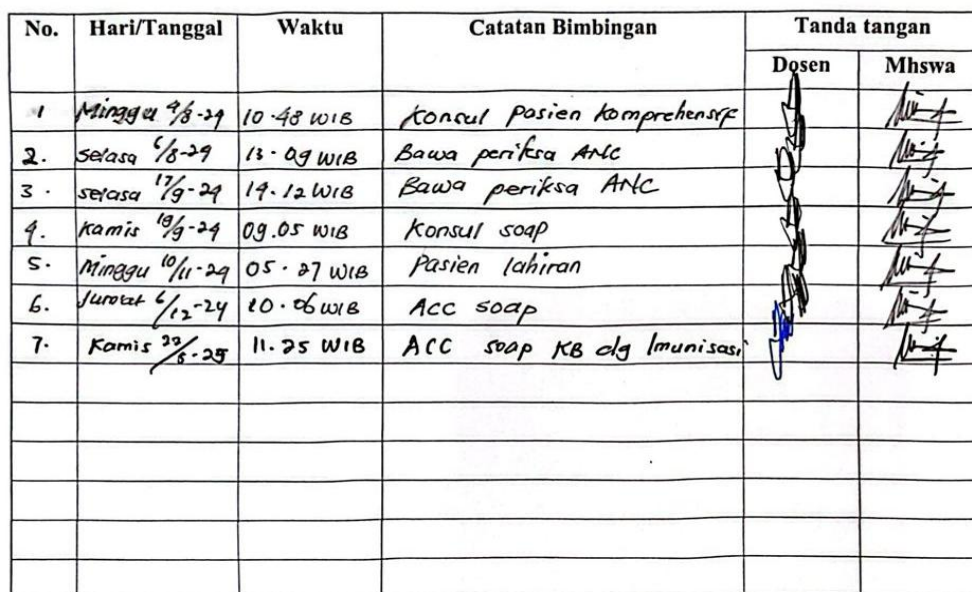 No. Hari/Tanggal Waktu Catatan Bimbingan Tanda tangan
Dosen Mhswa
1 Minggu 4/8-24 10.48 WIB Konsul pasien Komprehensif
2. Selasa 6/8-24 13.09 WIB Bawa periksa ANC
3. Selasa 17/9-24 14.12 WIB Bawa periksa ANC
4. Kamis 19/9-24 09.05 WIB Konsul soap
5. Minggu 10/11-24 05.27 WIB Pasien lahiran
6. 6/12-24 10.06 WIB Acc soap
7. Kamis 22/5-25 11.25 WIB ACC soap KB dg Imunisasi